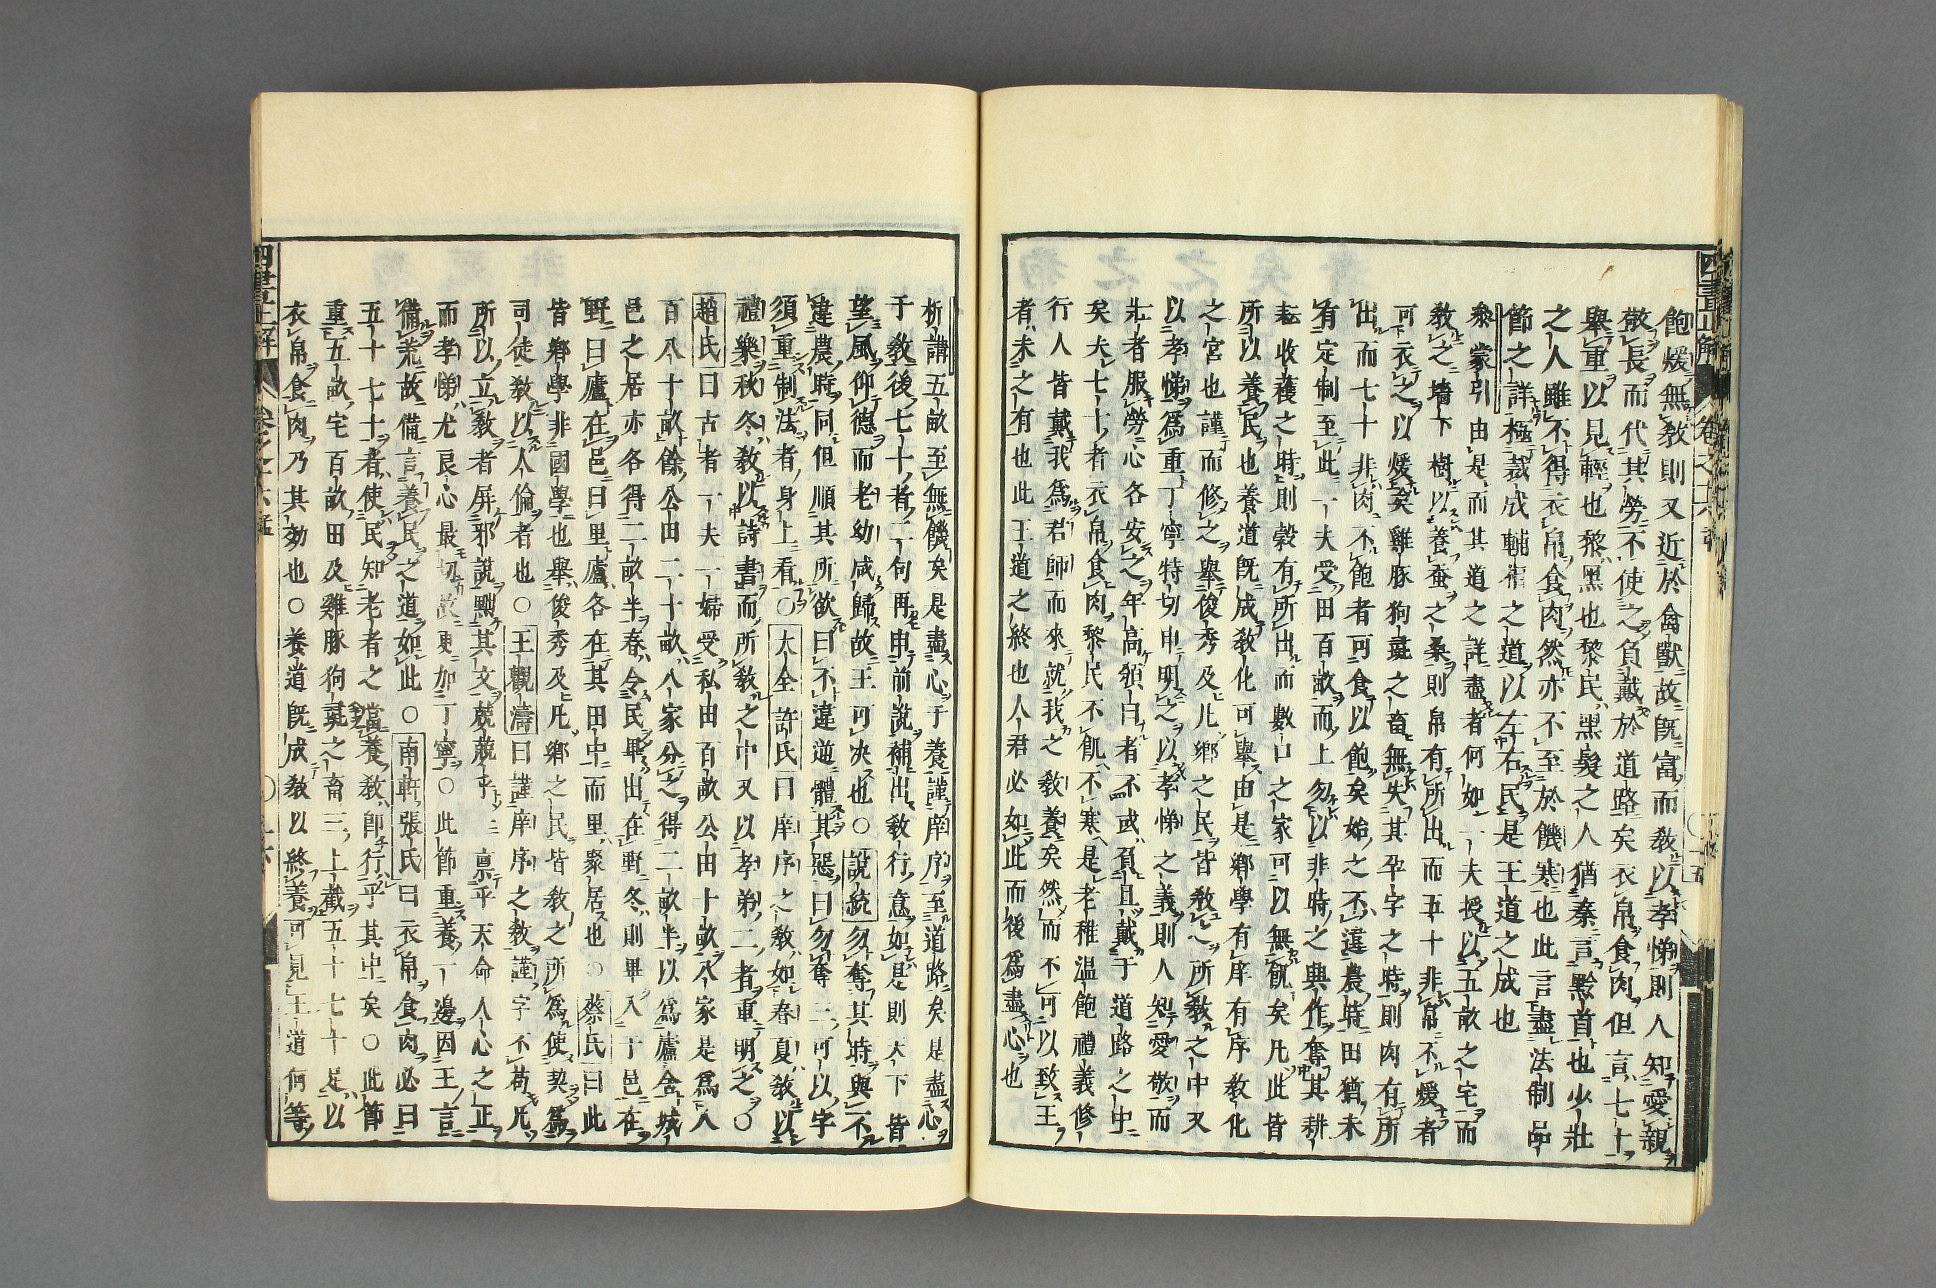 飽煖無敎則又近於禽獸故旣富而敎以孝悌則人知愛親
敬長而代其勞不使之負戴於道路矣衣帛食肉但言七十
舉重以見輕也黎黑也黎民黑髮之人猶秦言黔首也少壯
之人雖不得衣帛食肉然亦不至於饑寒也此言盡法制品
節之詳極裁成輔相之道以左右民是王道之成也
蒙引由是而其道之詳盡者何如一夫授以五畝之宅而
敎之墻下樹以養蚕之桑則帛有所出而五十非帛不煖者
可衣之以煖矣雞豚狗彘之畜無失其孕字之時則肉有所
出而七十非肉不飽者可食以飽矣始之不違農時田猶未
有定制至此一夫受田百畝而上勿以非時之興作奪其耕
耘收穫之時則穀有所出而數口之家可以無飢矣凡此皆
所以養民也養道旣成敎化可舉由是鄉學有庠有序敎化
之宮也謹而修之舉俊秀及凡鄉之民皆敎之所敎之中又
以孝悌爲重丁寧特切申明之以孝悌之義則人知愛敬而
壯者服勞心各安之年高頒白者不或負且戴于道路之中
矣夫七十者衣帛食肉黎民不飢不寒是老稚溫飽禮義修
行人皆戴我爲君師而來就我之敎養矣然而不可以致王
者未之有也此王道之終也人君必如此而後爲盡心也
析講五畝至無饑矣是盡心于養謹庠序至道路矣是盡心
于敎後七十者二句再申前說補出敎行意如是則天下皆
望風仰德而老幼咸歸故王可決也○說統勿奪其時與不
違農時同但順其所欲曰不違逆體其惩曰勿奪二可以字
須重制法者身上看○大全許氏曰庠序之敎如春夏敎以
禮樂秋冬敎以詩書而所敎之中又以孝弟二者重明之○
趙氏曰古者一夫一婦受私田百畝公田十畝八家是爲八
百八十畝餘公田二十畝八家分之得二畝半以爲廬舍城
邑之居亦各得二畝半春令民畢出在野冬則畢入于邑在
野曰廬在邑曰里廬各在其田中而里聚居也○蔡氏曰此
皆鄉學非國學也舉俊秀及凡鄉之民皆敎之所爲使契爲
司徒敎以人倫者也○王觀濤曰謹庠序之敎謹字不苟凡
所以立敎者屏邪說黜其文兢兢乎稟乎天命人心之正
而孝悌尤良心最切故更加丁寧○此節重養一邊因王言
備荒故備言養民之道如此○南軒張氏曰衣帛食肉必曰
五十七十者使民知老者之當養敎卽行乎其中矣○此節
重五畝宅百畝田及雞豚狗彘之畜三上截五十七十足以
衣帛食肉乃其効也○養道旣成敎以終養可見王道何等